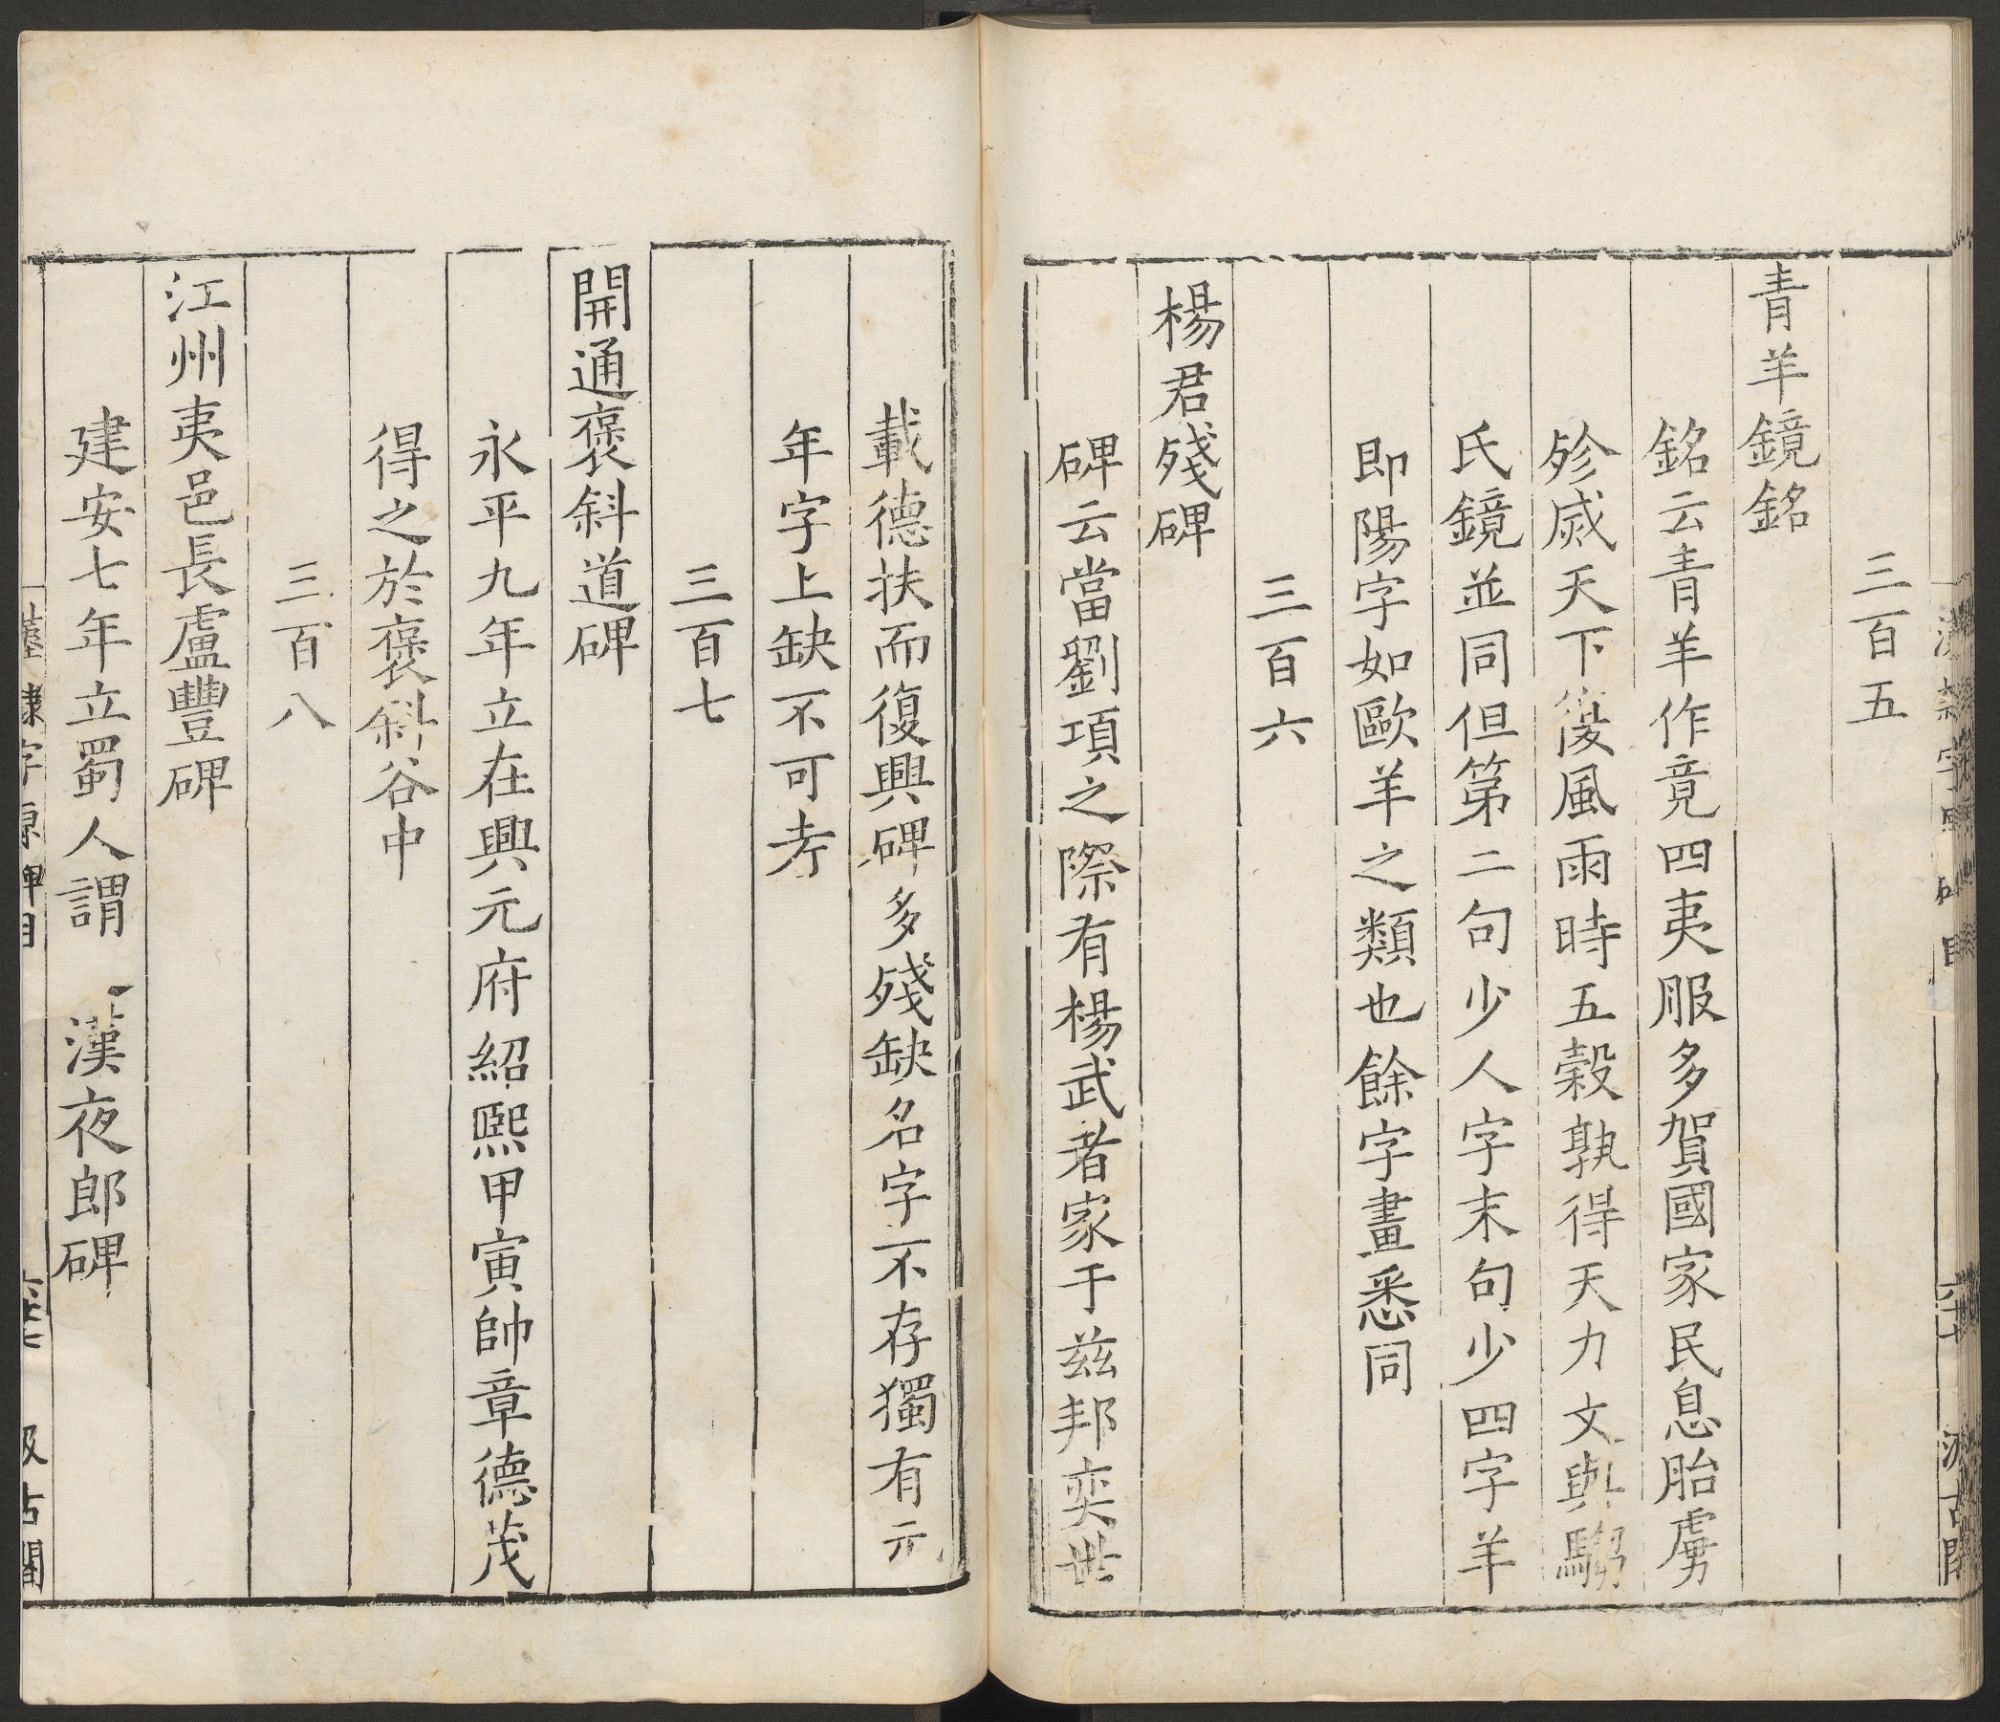 三百五
青羊鏡銘
銘云青羊作竟四夷服多賀國家民息胎虜
殄烕天下復風雨時五穀孰得天力文與騶
氏鏡並同但第二句少人字末句少四字羊
即陽字如歐羊之類也餘字畫悉同
三百六
楊君殘碑
碑云當劉項之際有楊武者家于兹邦奕世
載德扶而復興碑多殘缺名字不存獨有元
年字上缺不可考
三百七
開通褒斜道碑
永平九年立在興元府紹熙甲寅帥章德茂
得之於褒斜谷中
三百八
江州夷邑長盧豐碑
建安七年立蜀人謂 漢夜郎碑
隸字源碑目
汲古閣